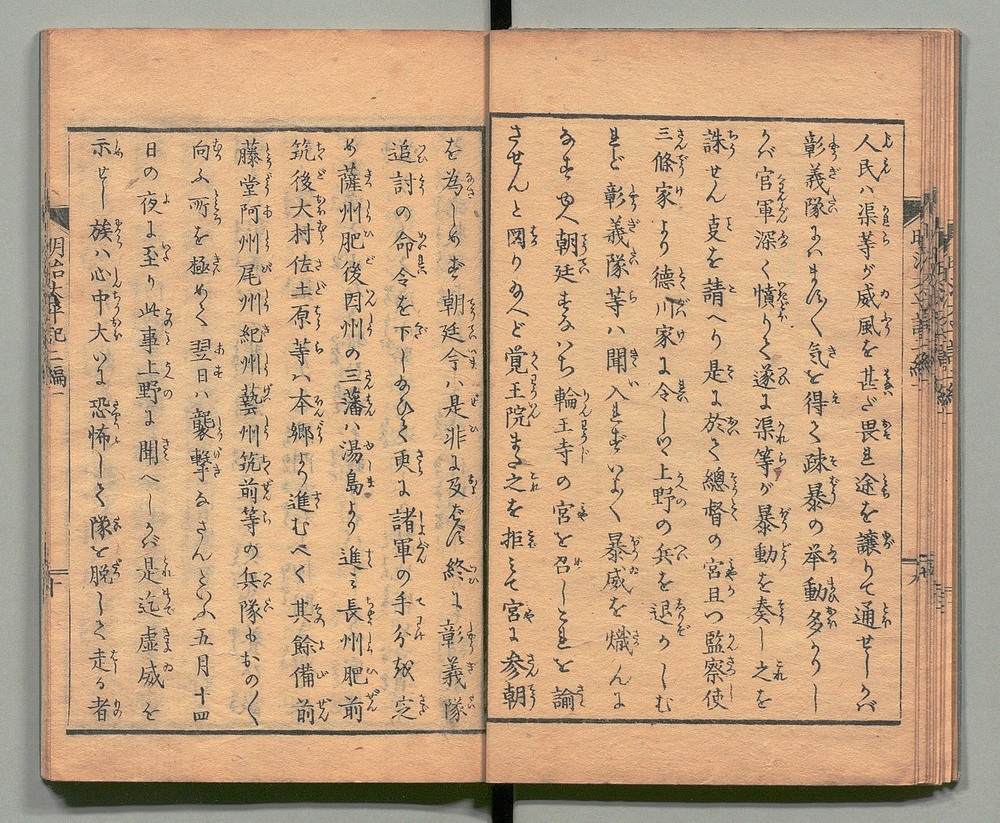 人民ハ渠等が威風を甚だ畏れ途を譲りて通せしかバ
彰義隊にハますく気を得て疎暴の挙動多かりし
かバ官軍深く憤りて遂に渠等が暴動を奏し之を
誅せん支を請へり是に於て總督の宮且つ監察使
三條家より德川家に令しつゝ上野の兵を退かしむ
れど彰義隊等ハ聞入れずいよく暴威を熾んに
なすゆへ朝廷すなハち輪王寺の宮を召しこれを諭
させんと図り給へど覚王院また之を拒ミて宮に参朝
を為しめず朝廷今ハ是非に及ばず終に彰義隊
追討の命令を下し給ひて更に諸軍の手分を定
め薩州肥後因州の三藩ハ湯島より進ミ長州肥前
筑後大村佐土原等ハ本郷より進むべく其餘備前
藤堂阿州尾州紀州藝州筑前等の兵隊もおのく
向ふ所を極めて翌日ハ襲撃なさんといふ五月十四
日の夜に至り此事上野に聞へしかバ是迄虚威を
示せし族ハ心中大いに恐怖して隊を脱して走る者
明治太平記二編